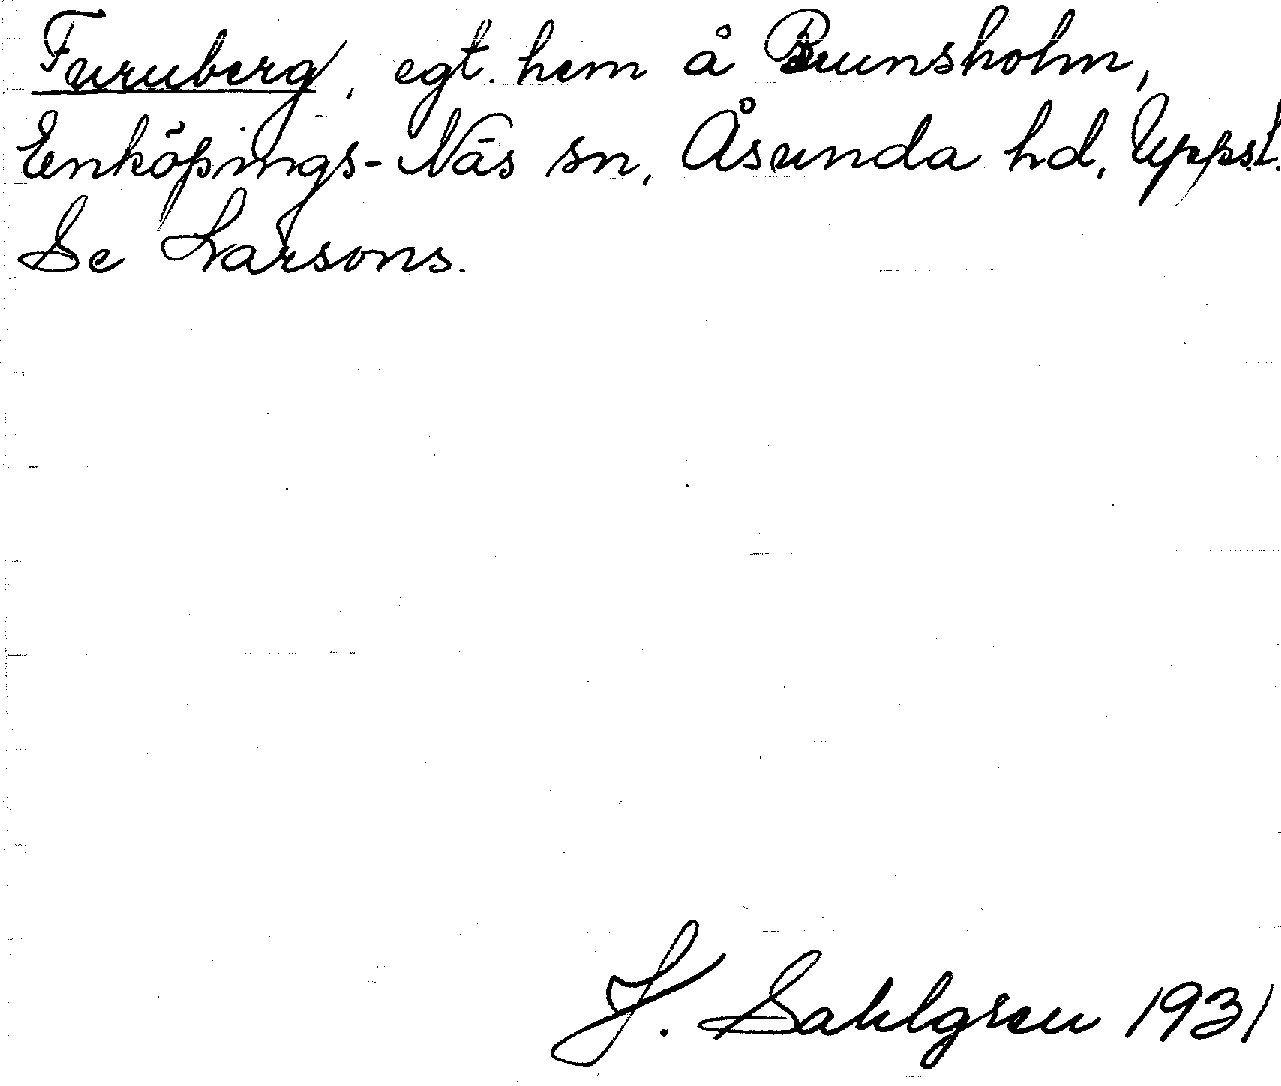 Furuberg, egt. hem å Brunsholm,
Enköpings-Näs sn, Åsunda hd, Uppsl.
Se Larsons.
J. Sahlgren 1931